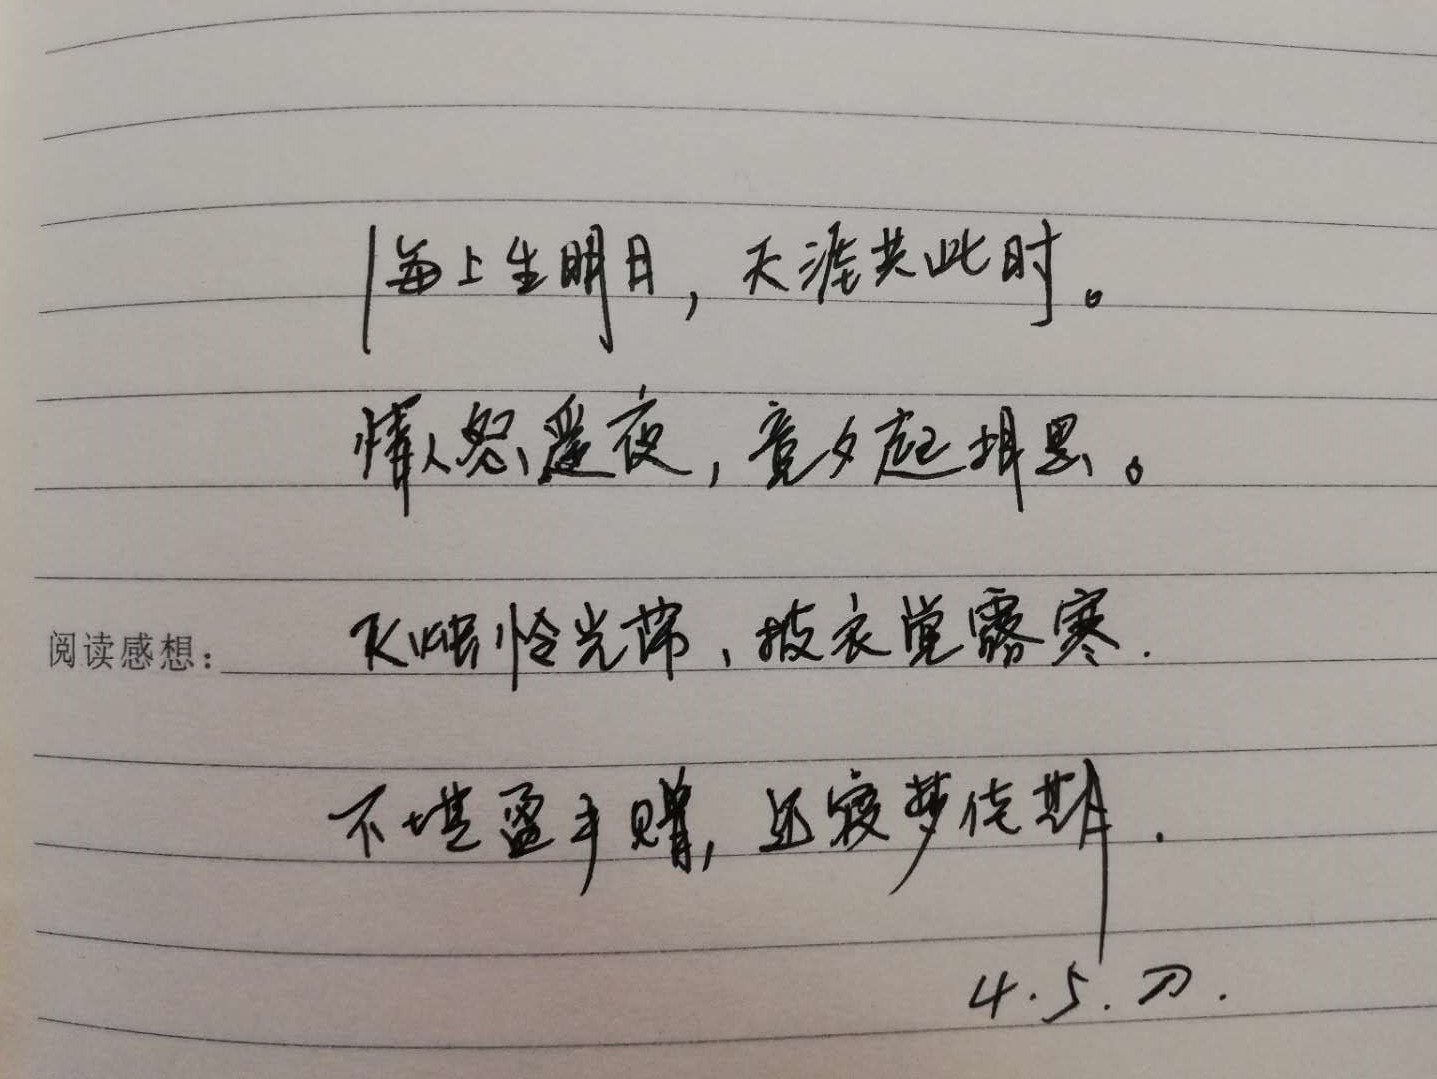 海上生明月，天涯共此时。
情人怨遥夜，竟夕起相思。
阅读感想：灭烛怜光满，披衣觉露寒.
不堪盈手赠，还寝梦佳期.
4.5.